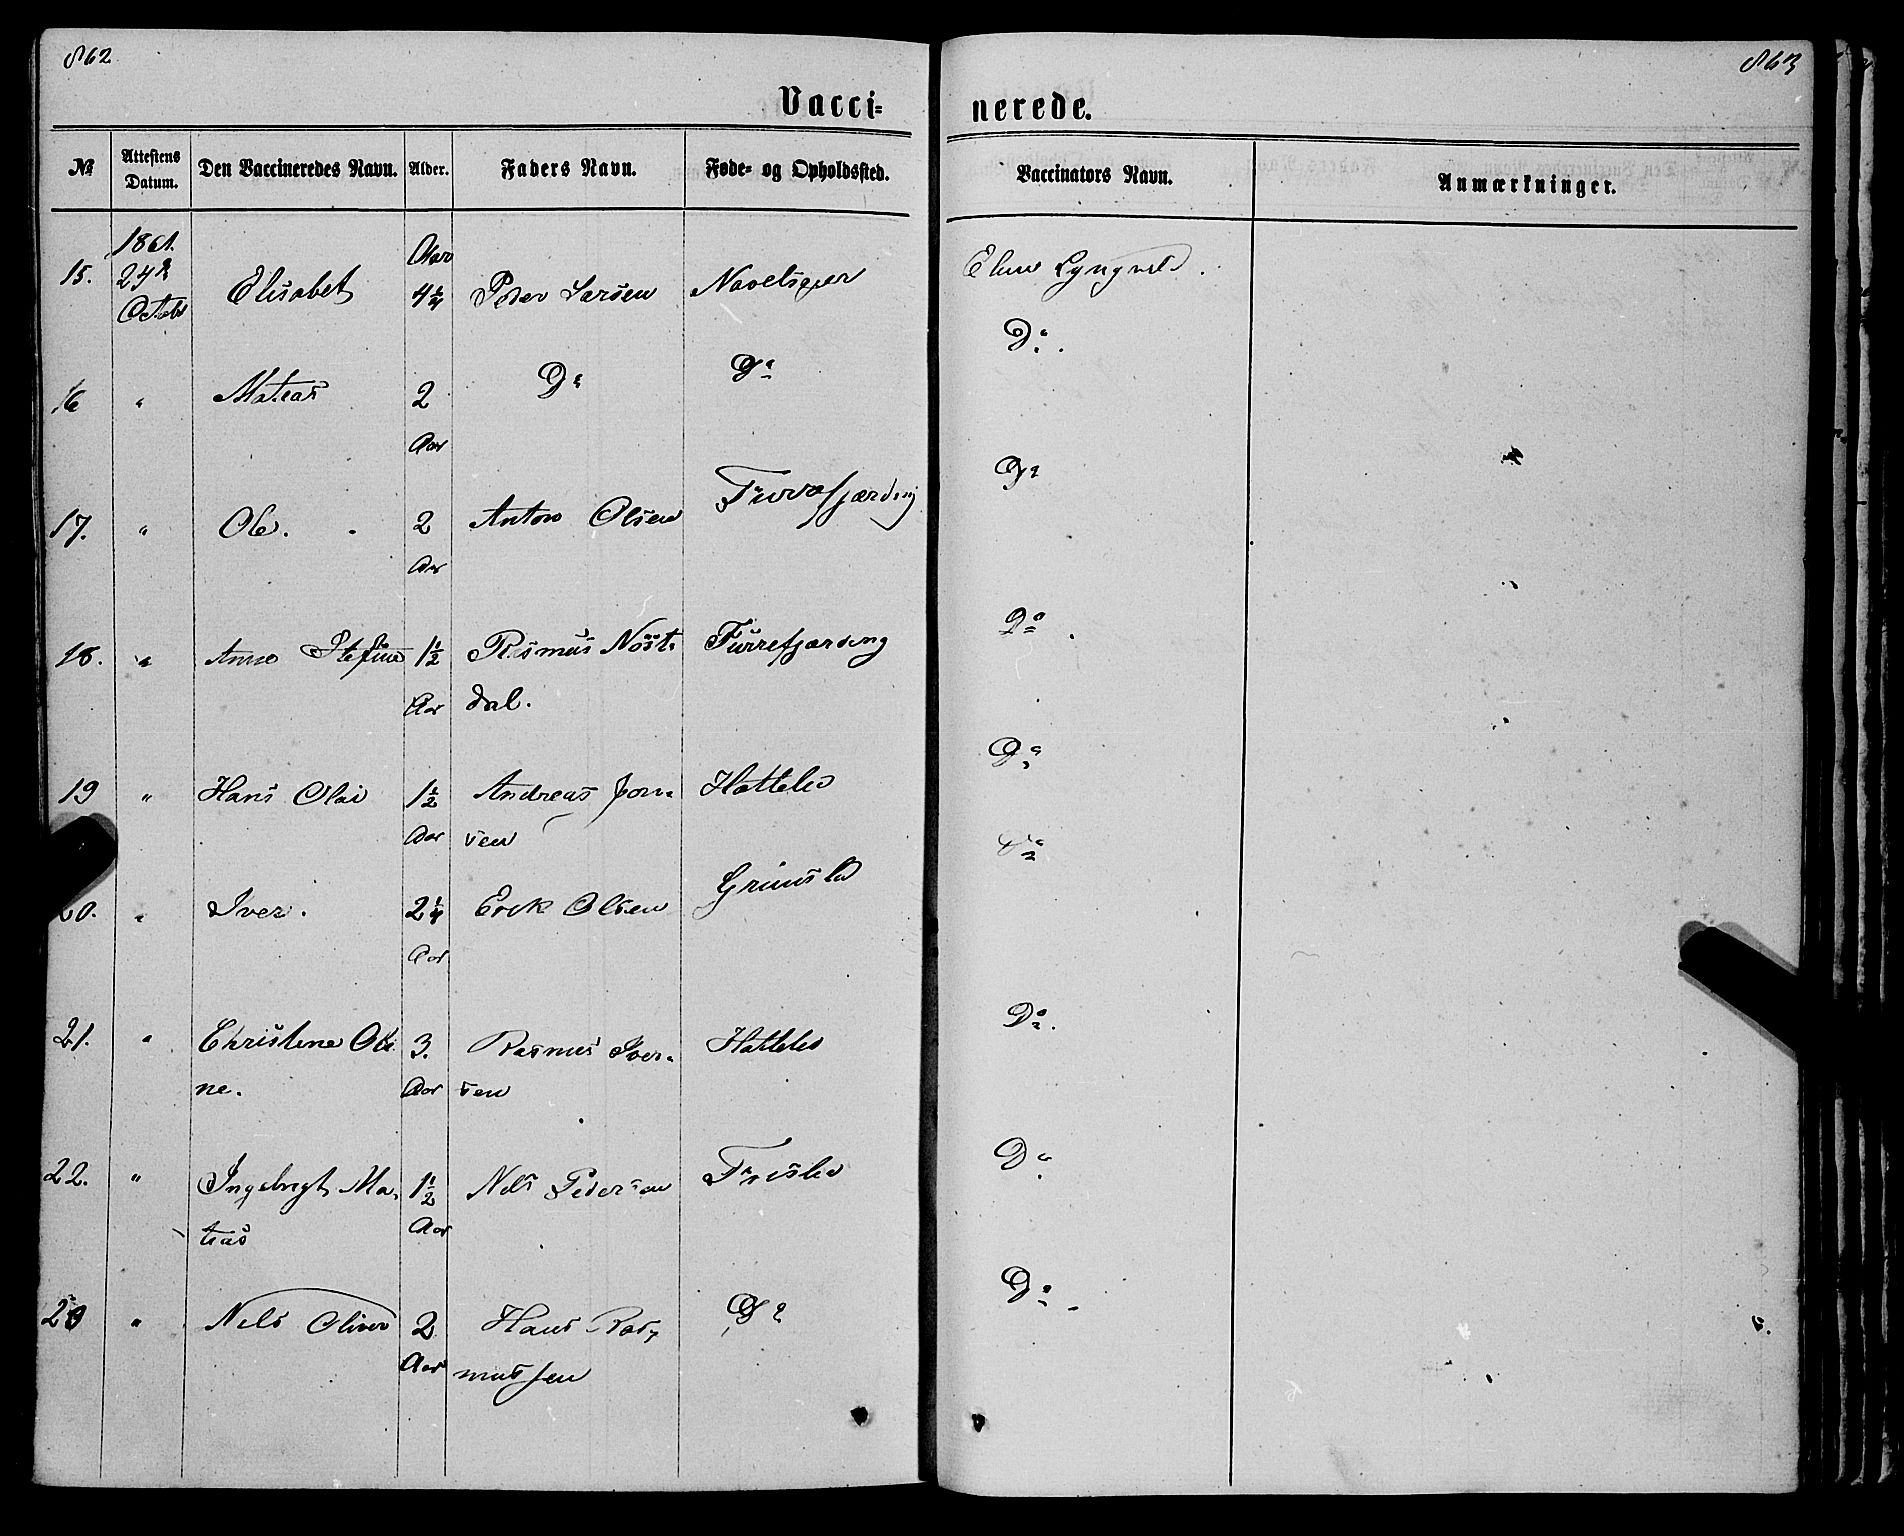 862
863
Vacci-
nerede.
№ Attestens Datum. Den Vaccineredes Navn. Alder. Faders Navn. Føde- og Opholdssted. Vaccinators Navn. Anmærkninger.
1861.
15. 24de Octobr Elisabet 4½ Aar Peder Larsen
Do.
16 " Mateas 2 Aar Do Do
Do
17. " Ole. 2 Aar Anton Olsen Furrefjærding
Do.
18. " Anne Stefine 1½ Aar Rasmus Nöst-
dal.
Furrefjærding
Do
19 " Hans Olai 1½ Aar Andreas Jon-
sen
Hatlelid
Do
20. " Iver. 2¼ Aar Erik Olsen
Do.
21. " Christene Oli-
ne.
3. Aar Rasmus Iver-
sen
Hatlelid
Do
22. " Ingebrigt Ma-
tias
1½ Aar Nels Pedersen
Do.
23 " Nels Oliver 2 Aar Hans Ras-
mussen
Do